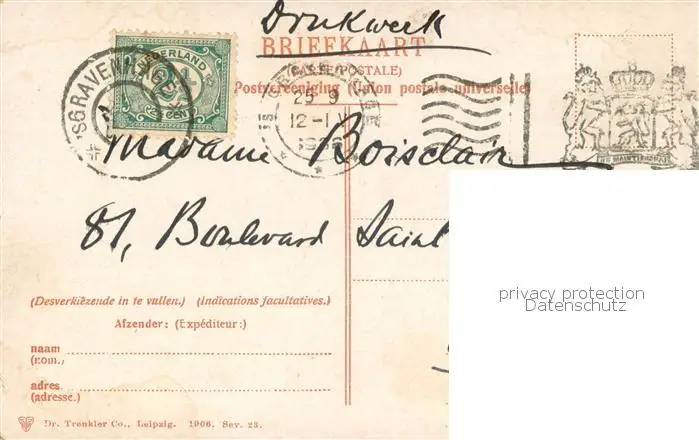 Drukwerk
BRIEFKAART
(CARTE POSTALE)
Postvereeniging (Union postale universelle)
NEDERLAND
'SGRAVENHAGE
25 9
12-1
JE MAINTIENDRAI
Madame Boisclair
81, Boulevard Saint
privacy protection
Datenschutz
(Desverkiezende in te vullen.) (Indications facultatives.)
Afzender: (Expéditeur:)
naam
(nom.)
adres
(adresse.)
Dr. Trenkler Co., Leipzig. 1906. Sev. 23.